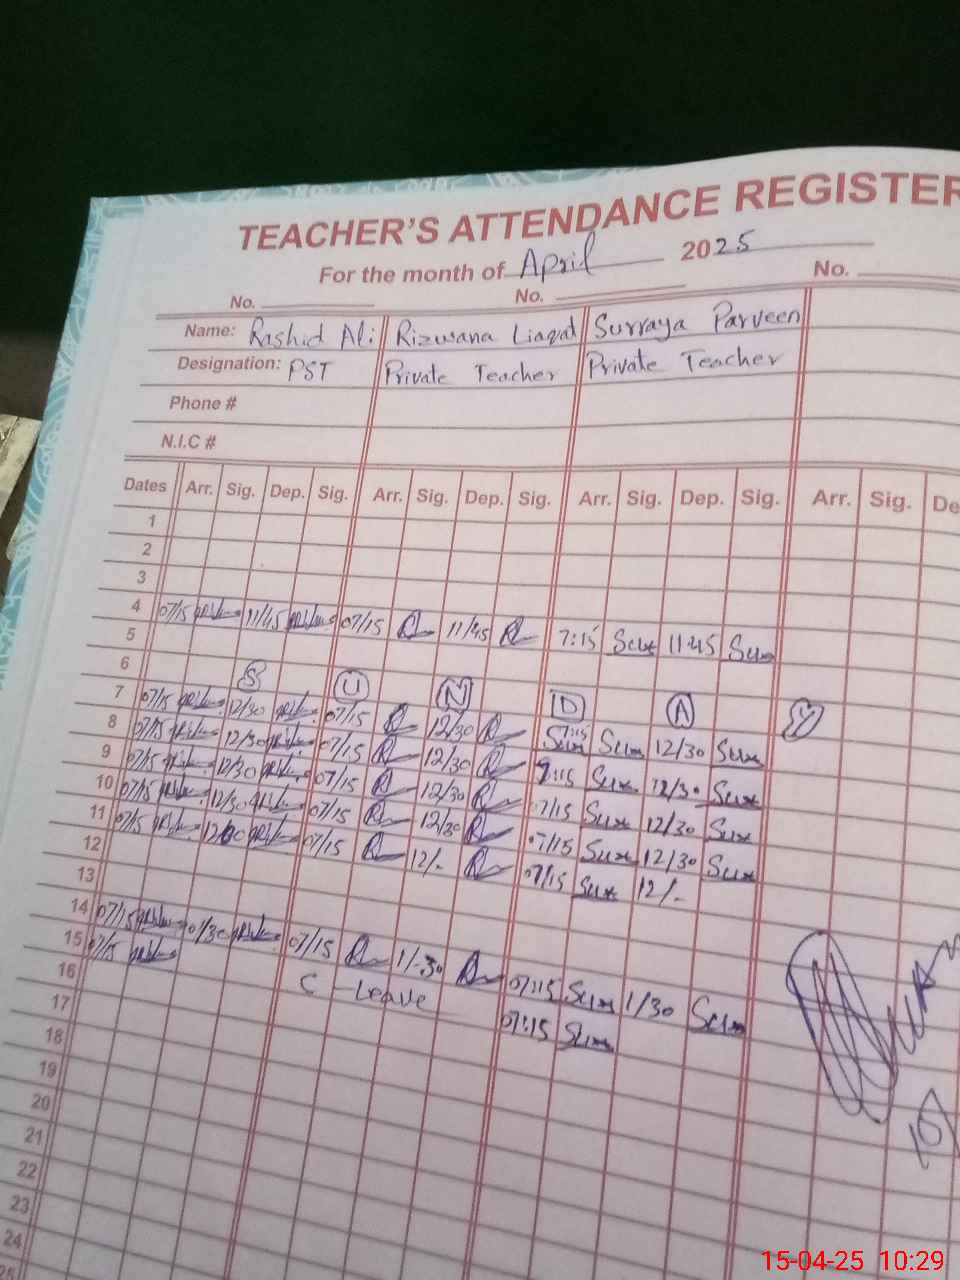 TEACHER'S ATTENDANCE REGISTER
For the month of April 2025
No. No. No.
Name: Rashid Ali Rizwana Liaqat Surraya Parveen
Designation: PST Private Teacher Private Teacher
Phone #
N.I.C #
Dates Arr. Sig. Dep. Sig. Arr. Sig. Dep. Sig. Arr. Sig. Dep. Sig. Arr. Sig. De
1
2
3
4 07/15 11/45 07/15 11/45 7:15 11:45
5
6 S U N D A Y
7 07/15 12/30 07/15 12/30 7:15 12/30
8 07/15 12/30 07/15 12/30 7:15 12/30
9 07/15 12/30 07/15 12/30 07/15 12/30
10 07/15 12/30 07/15 12/30 07/15 12/30
11 07/15 07/15 12/- 07/15 12/-
12
13
14 07/15 01/30 07/15 1/-30 07:15 1/30
15 07/15 C Leave 07:15
16
17
18
19
20
21
22
23
24
25
15-04-25 10:29